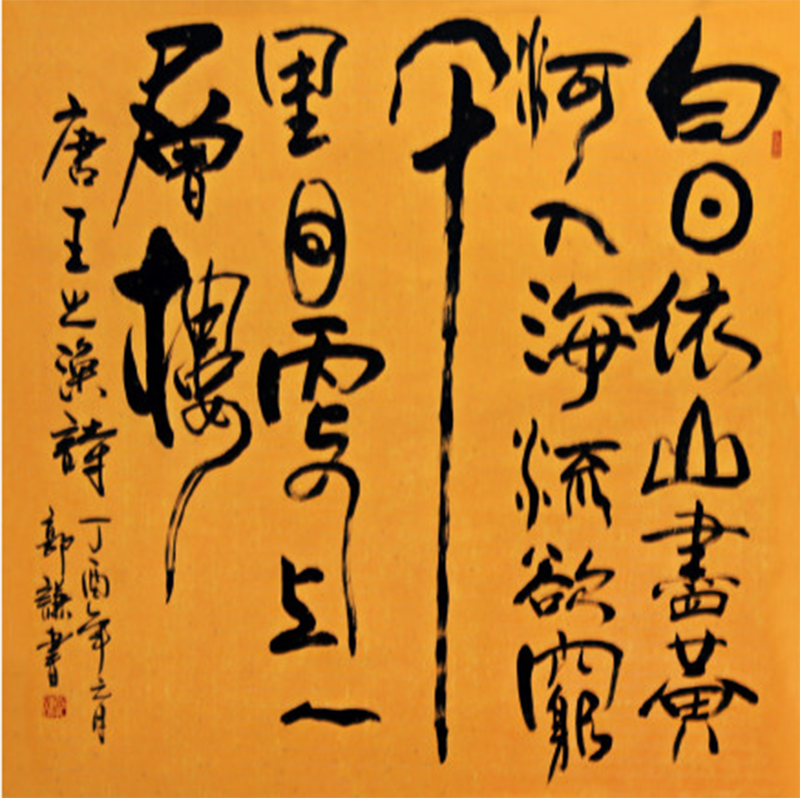 白日依山盡黄
河入海流欲窮
千
里目更上一
層樓
唐王之渙詩
丁酉年元月
郭謙書